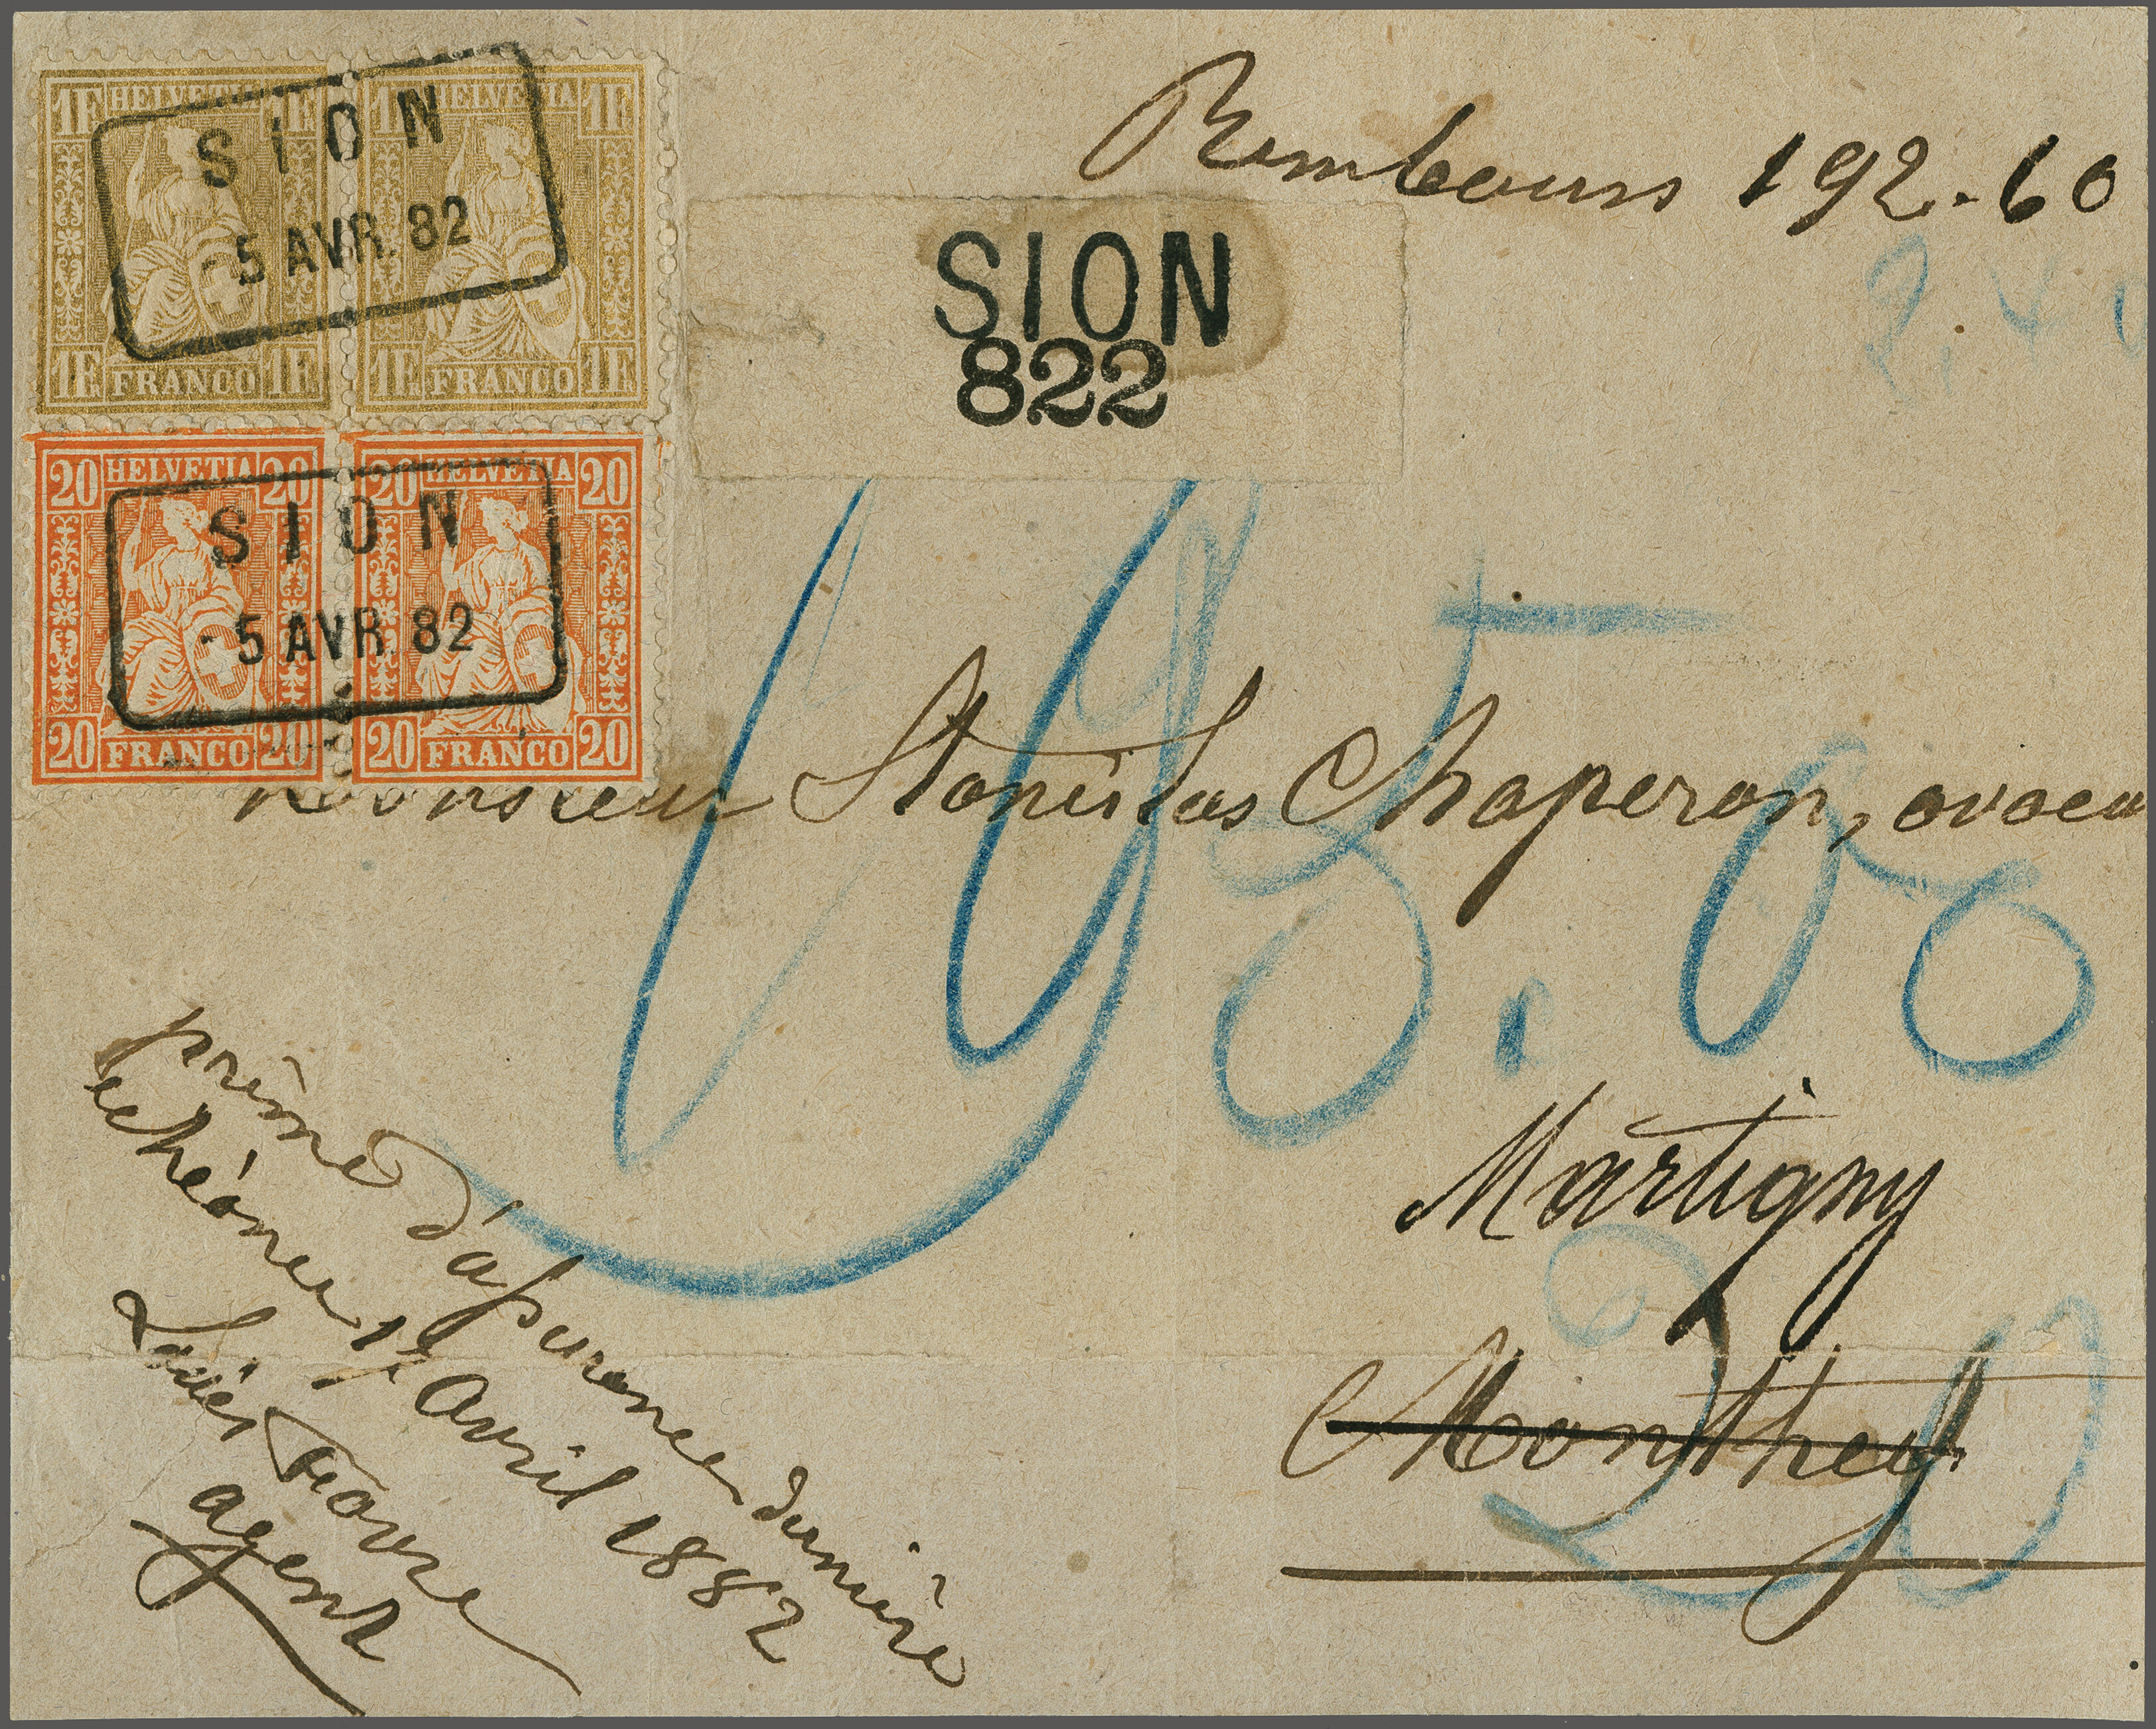 1F HELVETIA 1F 1F HELVETIA 1F
SION
5 AVR. 82
1F FRANCO 1F 1F FRANCO 1F
20 HELVETIA 20 20 HELVETIA 20
SION
5 AVR. 82
20 FRANCO 20 20 FRANCO 20
Rembours 192.60
2.40
SION
822
195.00
Monsieur Stanislas Chaperon, avoca
Martigny
Monthey
20
prime d'assurance dernière
echéance 1r Avril 1882
Favre
agent